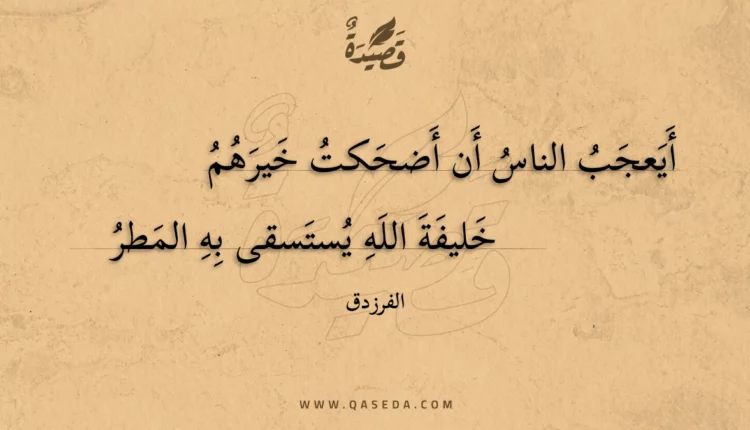 قَصِيْدَةٌ
أَيَعجَبُ الناسُ أَن أَضحَكتُ خَيرَهُمُ
خَليفَةَ اللَهِ يُستَسقى بِهِ المَطرُ
الفرزدق
WWW.QASEDA.COM